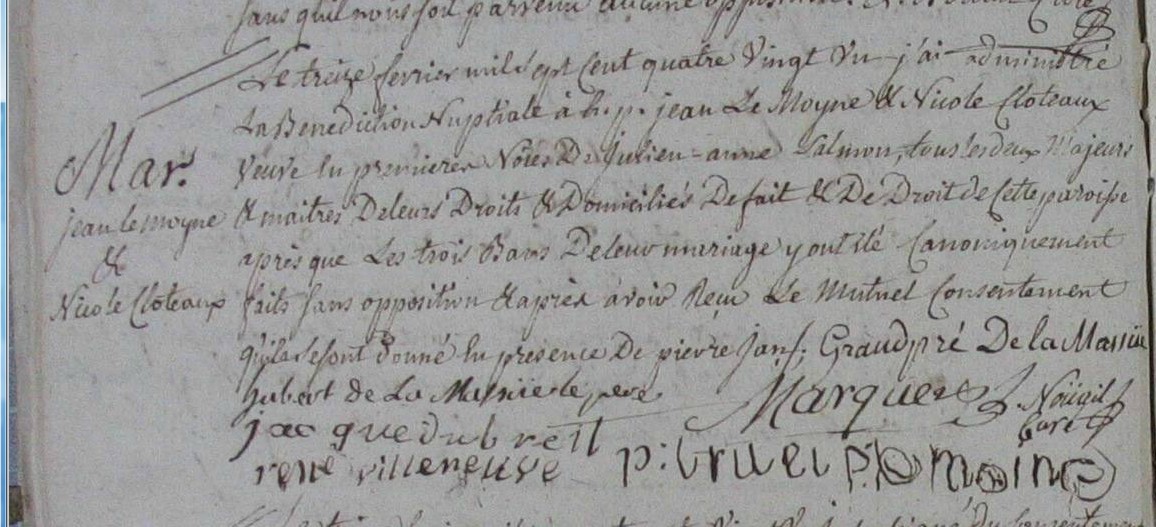 sans qu'il nous soit parvenu aucune opposition.
Le treize fevrier mil sept Cent quatre Vingt Un j'ai administré
La Benediction Nuptiale à h. p. jean Le Moyne & Nicole Cloteaux
Veuve En premieres Nôces De Julien-anne Salmon, tous les deux Majeurs
& maitres De leurs Droits & Domiciliés De fait & De Droit de Cette paroisse
après que Les trois Bans De leur mariage y ont été Canoniquement
faits sans opposition & après avoir Reçu Le Mutuel Consentement
qu'ils se sont Donné En presence De pierre
Mar.
jean le moyne
&
Nicole Cloteaux
Grandpré De la
hubert de La le pere
Marquer
jacque dubreil
rene villeneuve